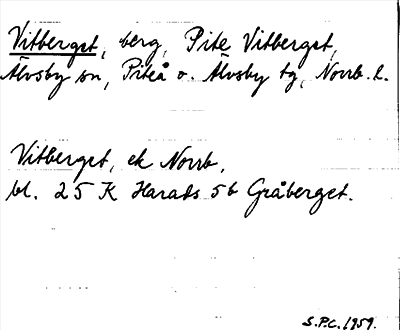 Vitberget, berg, Pite Vitberget,
Älvsby sn, Piteå o. Älvsby tg, Norrb. l.
Vitberget, ek Norrb,
bl. 25 K Harads 5b Gråberget.
S.P.C. 1959.